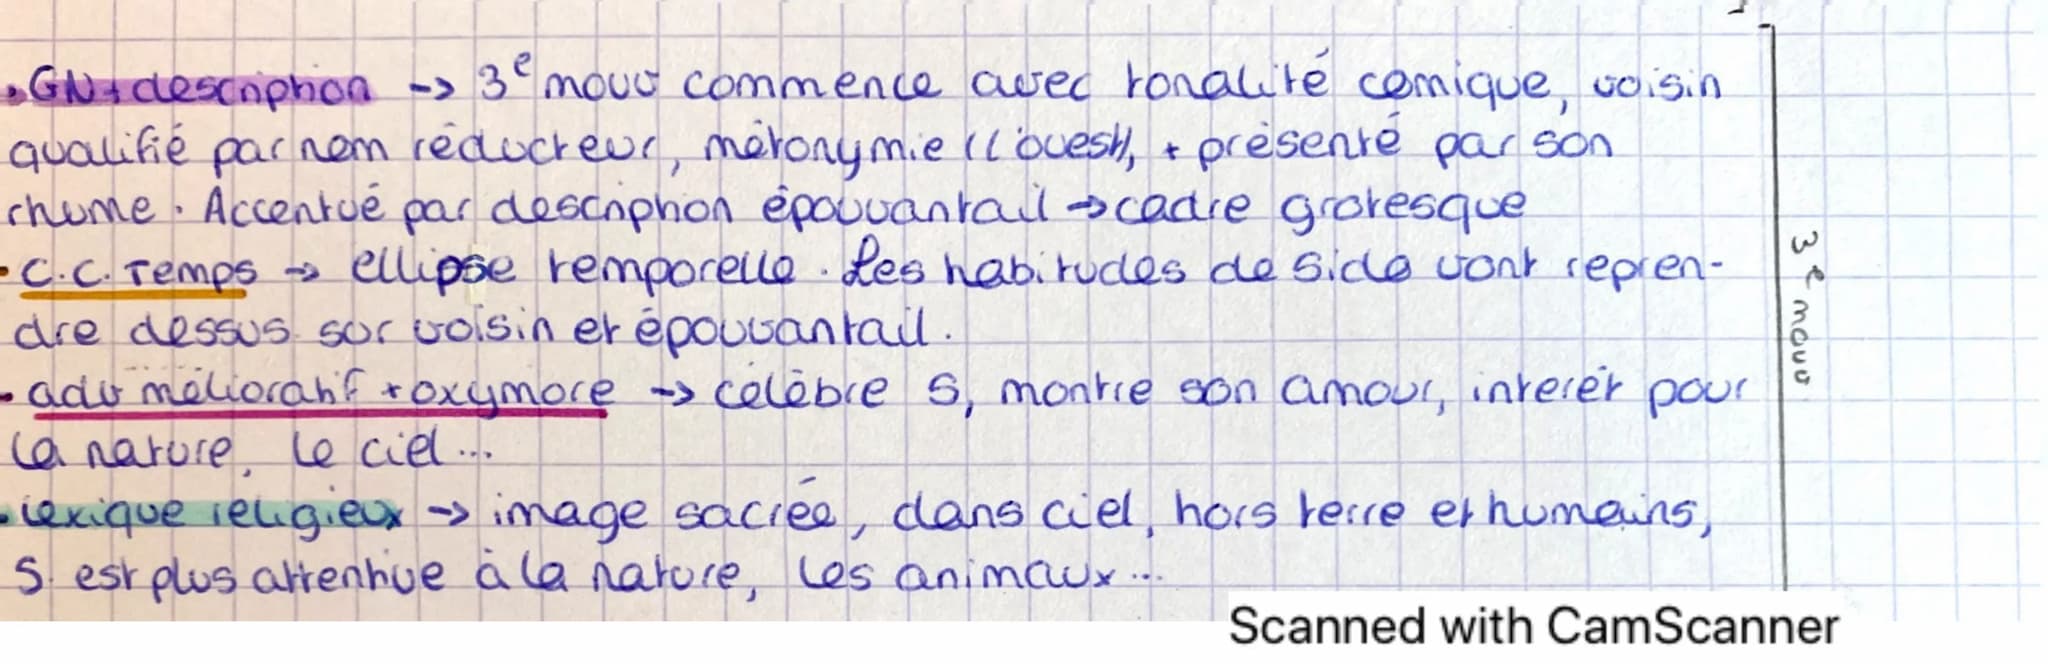 • GN + description -> 3e mouv commence avec tonalité comique, voisin
qualifié par nom réducteur, métonymie (l'ouest), + présenté par son
rhume. Accentué par description épouvantail → cadre grotesque
• C.C. Temps → ellipse temporelle. Les habitudes de Sido vont repren-
dre dessus sur voisin et épouvantail.
• adv mélioratif + oxymore -> célèbre S, montre son amour, interêt pour
la nature, le ciel...
• Lexique religieux -> image sacrée, dans ciel, hors terre et humains,
S. est plus attentive à la nature, les animaux...
3e mouv
Scanned with CamScanner